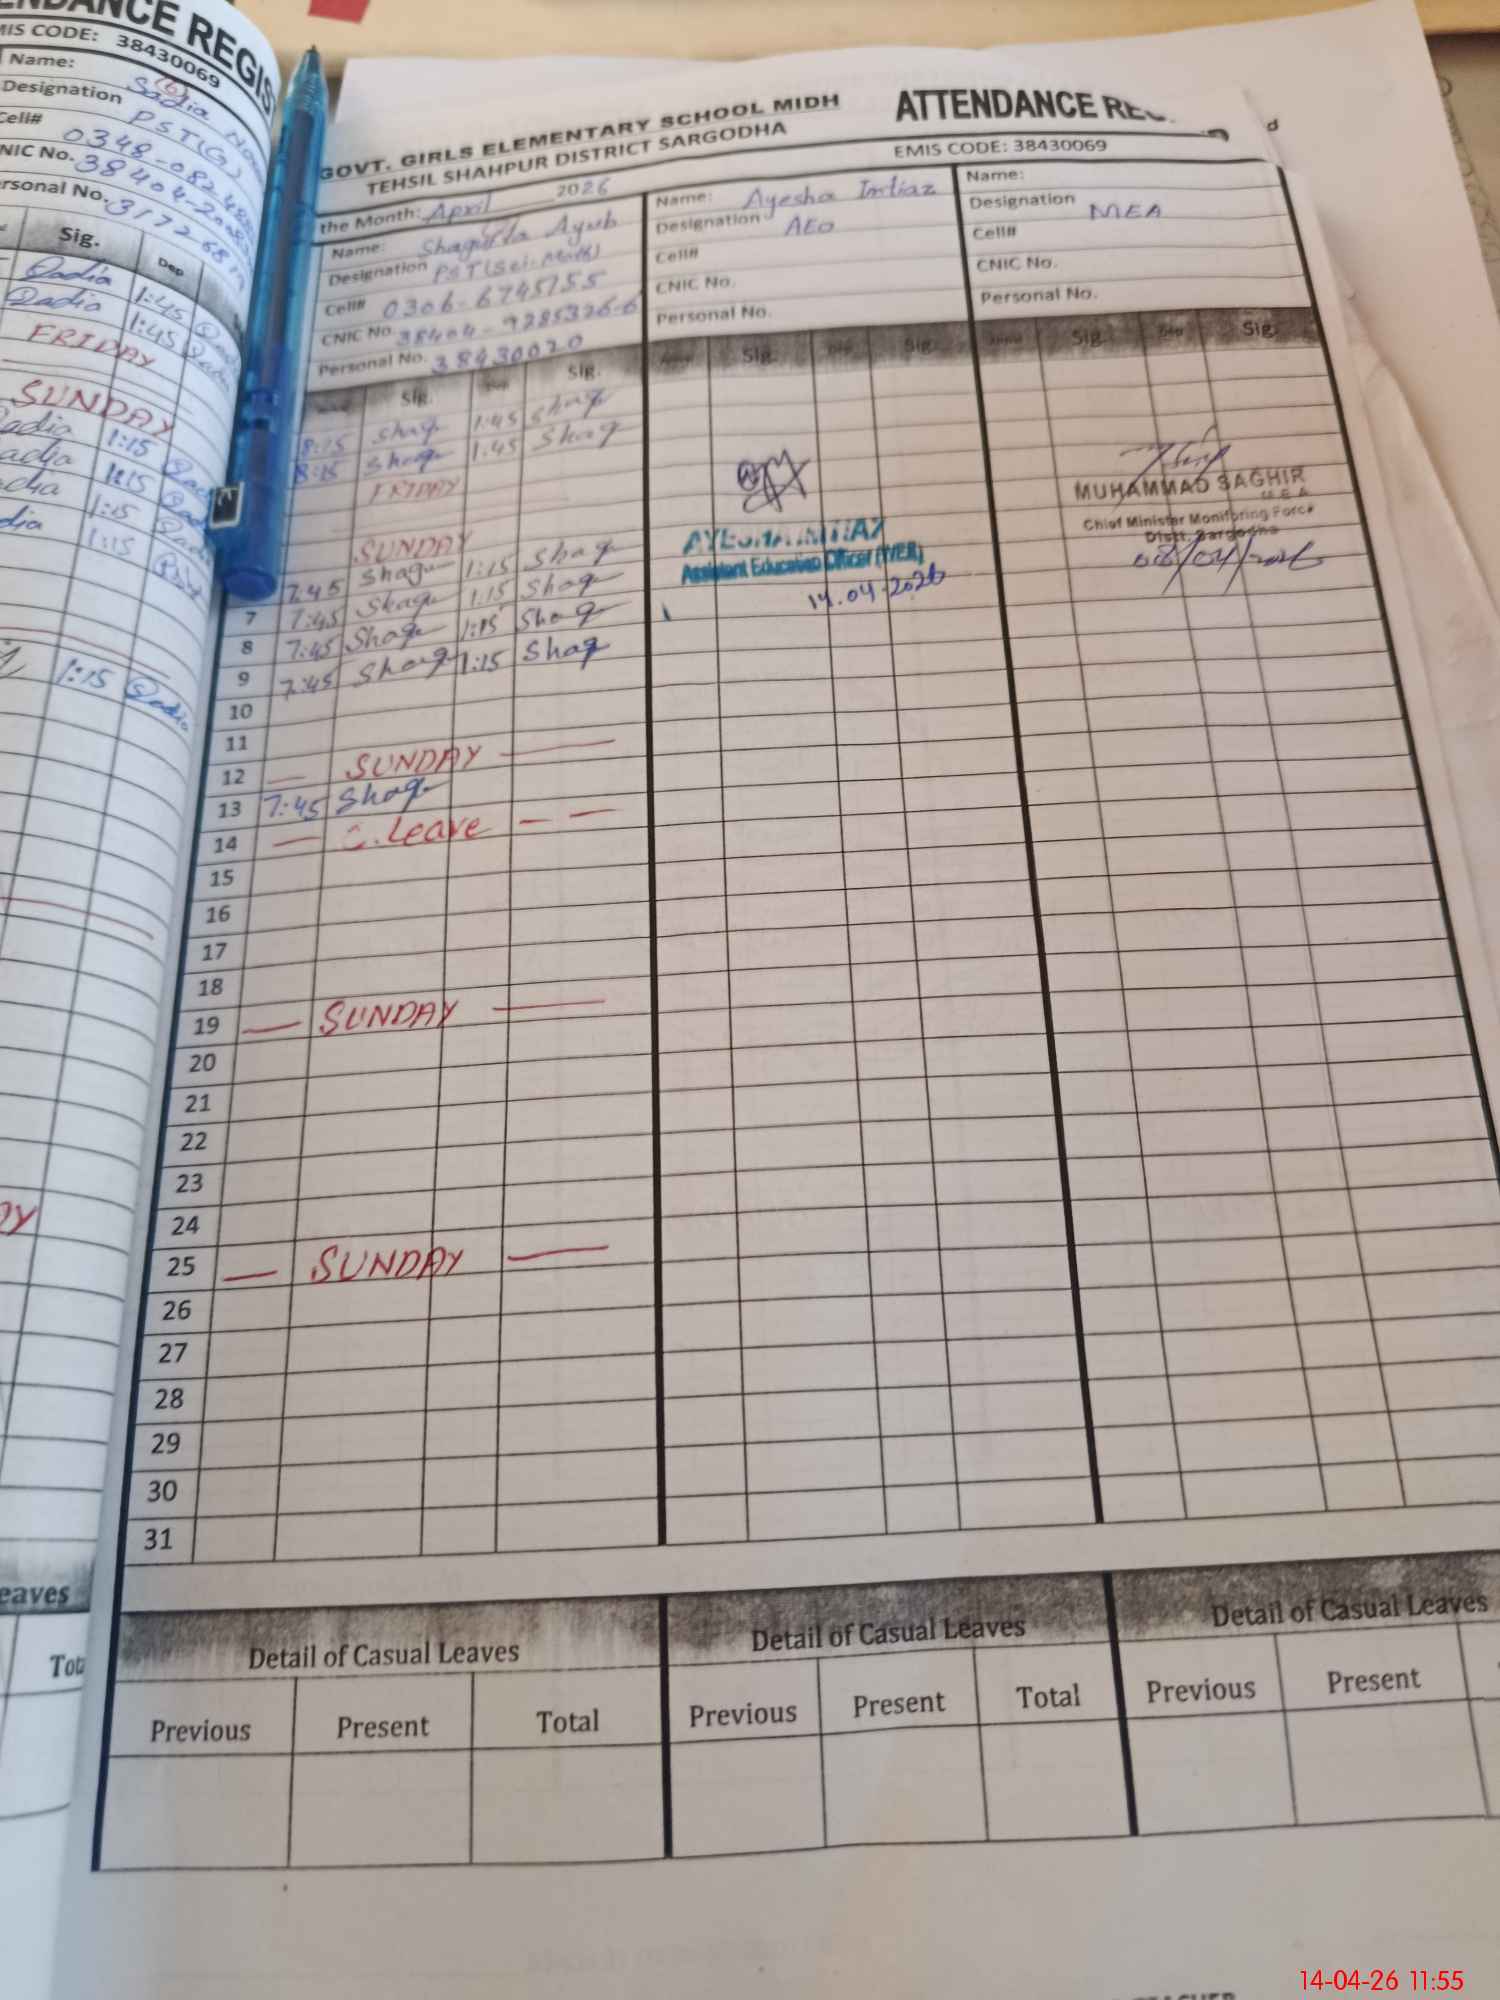 ENDANCE REGIS
MIS CODE: 38430069
Name: Sadia
Designation PST(G)
Cell# 0348-082
NIC No. 38404-200
rsonal No. 3172681
Sig. Dep
Sadia 1:45 Sadia
Sadia 1:45 Sadia
FRIDAY
SUNDAY
Sadia 1:15 Sadi
adia 1:15 Sadi
dia 1:15 Sadi
dia 1:15
1:15 Sadia
DY
eaves
Tota
GOVT. GIRLS ELEMENTARY SCHOOL MIDH ATTENDANCE REG
TEHSIL SHAHPUR DISTRICT SARGODHA EMIS CODE: 38430069
the Month: April 2026
Name: Shagufta Ayub
Designation PST(Sci-Math)
Cell# 0306-6745755
CNIC No. 38404-9285326-6
Personal No. 38430020
Name: Ayesha Imtiaz
Designation AEO
Cell#
CNIC No.
Personal No.
Name:
Designation MEA
Cell#
CNIC No.
Personal No.
Sig. Dep Sig. Sig. Dep Sig. Sig. Dep Sig.
8:15 Shaq 1:45 Shaq
8:15 Shaq 1:45 Shaq
FRIDAY
SUNDAY
7:45 Shaq 1:15 Shaq
7 7:45 Shaq 1:15 Shaq
8 7:45 Shaq 1:15 Shaq
9 7:45 Shaq 1:15 Shaq
10
11
12 — SUNDAY —
13 7:45 Shaq
14 — C. Leave — —
15
16
17
18
19 — SUNDAY —
20
21
22
23
24
25 — SUNDAY —
26
27
28
29
30
31
AYESHA IMTIAZ
Assistant Education Officer
14.04.2026
MUHAMMAD SAGHIR
M E A
Chief Minister Monitoring Force
Distt. Sargodha
08/04/2026
Detail of Casual Leaves Detail of Casual Leaves Detail of Casual Leaves
Previous Present Total Previous Present Total Previous Present
14-04-26 11:55